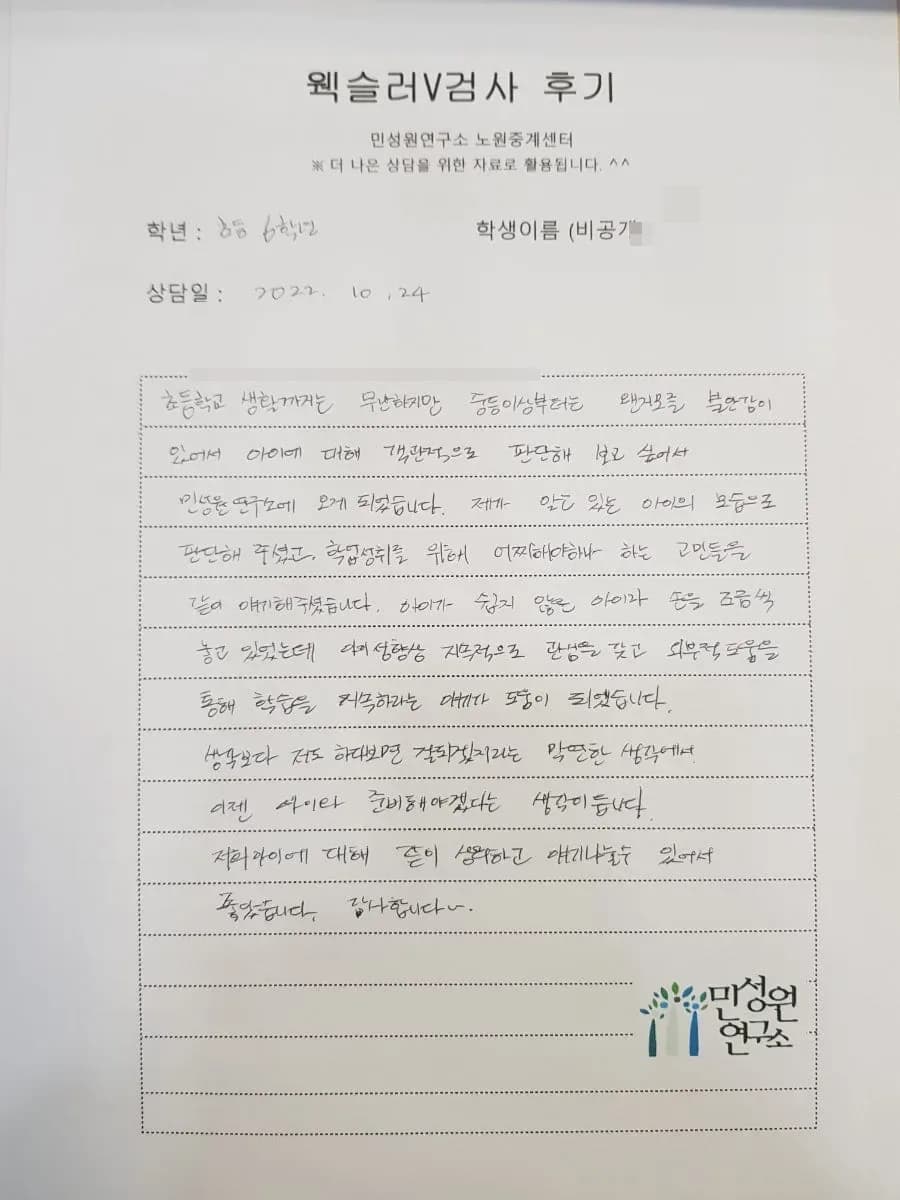 웩슬러V검사 후기
민성원연구소 노원중계센터
※ 더 나은 상담을 위한 자료로 활용됩니다. ^^
학년 : 초등 6학년
학생이름 (비공개
상담일 : 2022. 10 .24
초등학교 생활까지는 무난하지만 중등이상부터는 왠지모를 불안감이
있어서 아이에 대해 객관적으로 판단해 보고 싶어서
민성원연구소에 오게 되었습니다. 제가 알고 있는 아이의 모습으로
판단해 주셨고, 학업성취를 위해 어찌해야하나 하는 고민들을
같이 얘기해주셨습니다. 아이가 쉽지 않은 아이라 손을 조금씩
놓고 있었는데 아이 성향상 지속적으로 관심을 갖고 외부적도움을
통해 학습을 지속하라는 얘기가 도움이 되었습니다.
저도 하다보면 잘되겠지라는 막연한 생각에서
이젠 준비해야겠다는 생각이듭니다.
저희아이에 대해 같이 생각하고 얘기나눌수 있어서
좋았습니다. 감사합니다~.
민성원
연구소